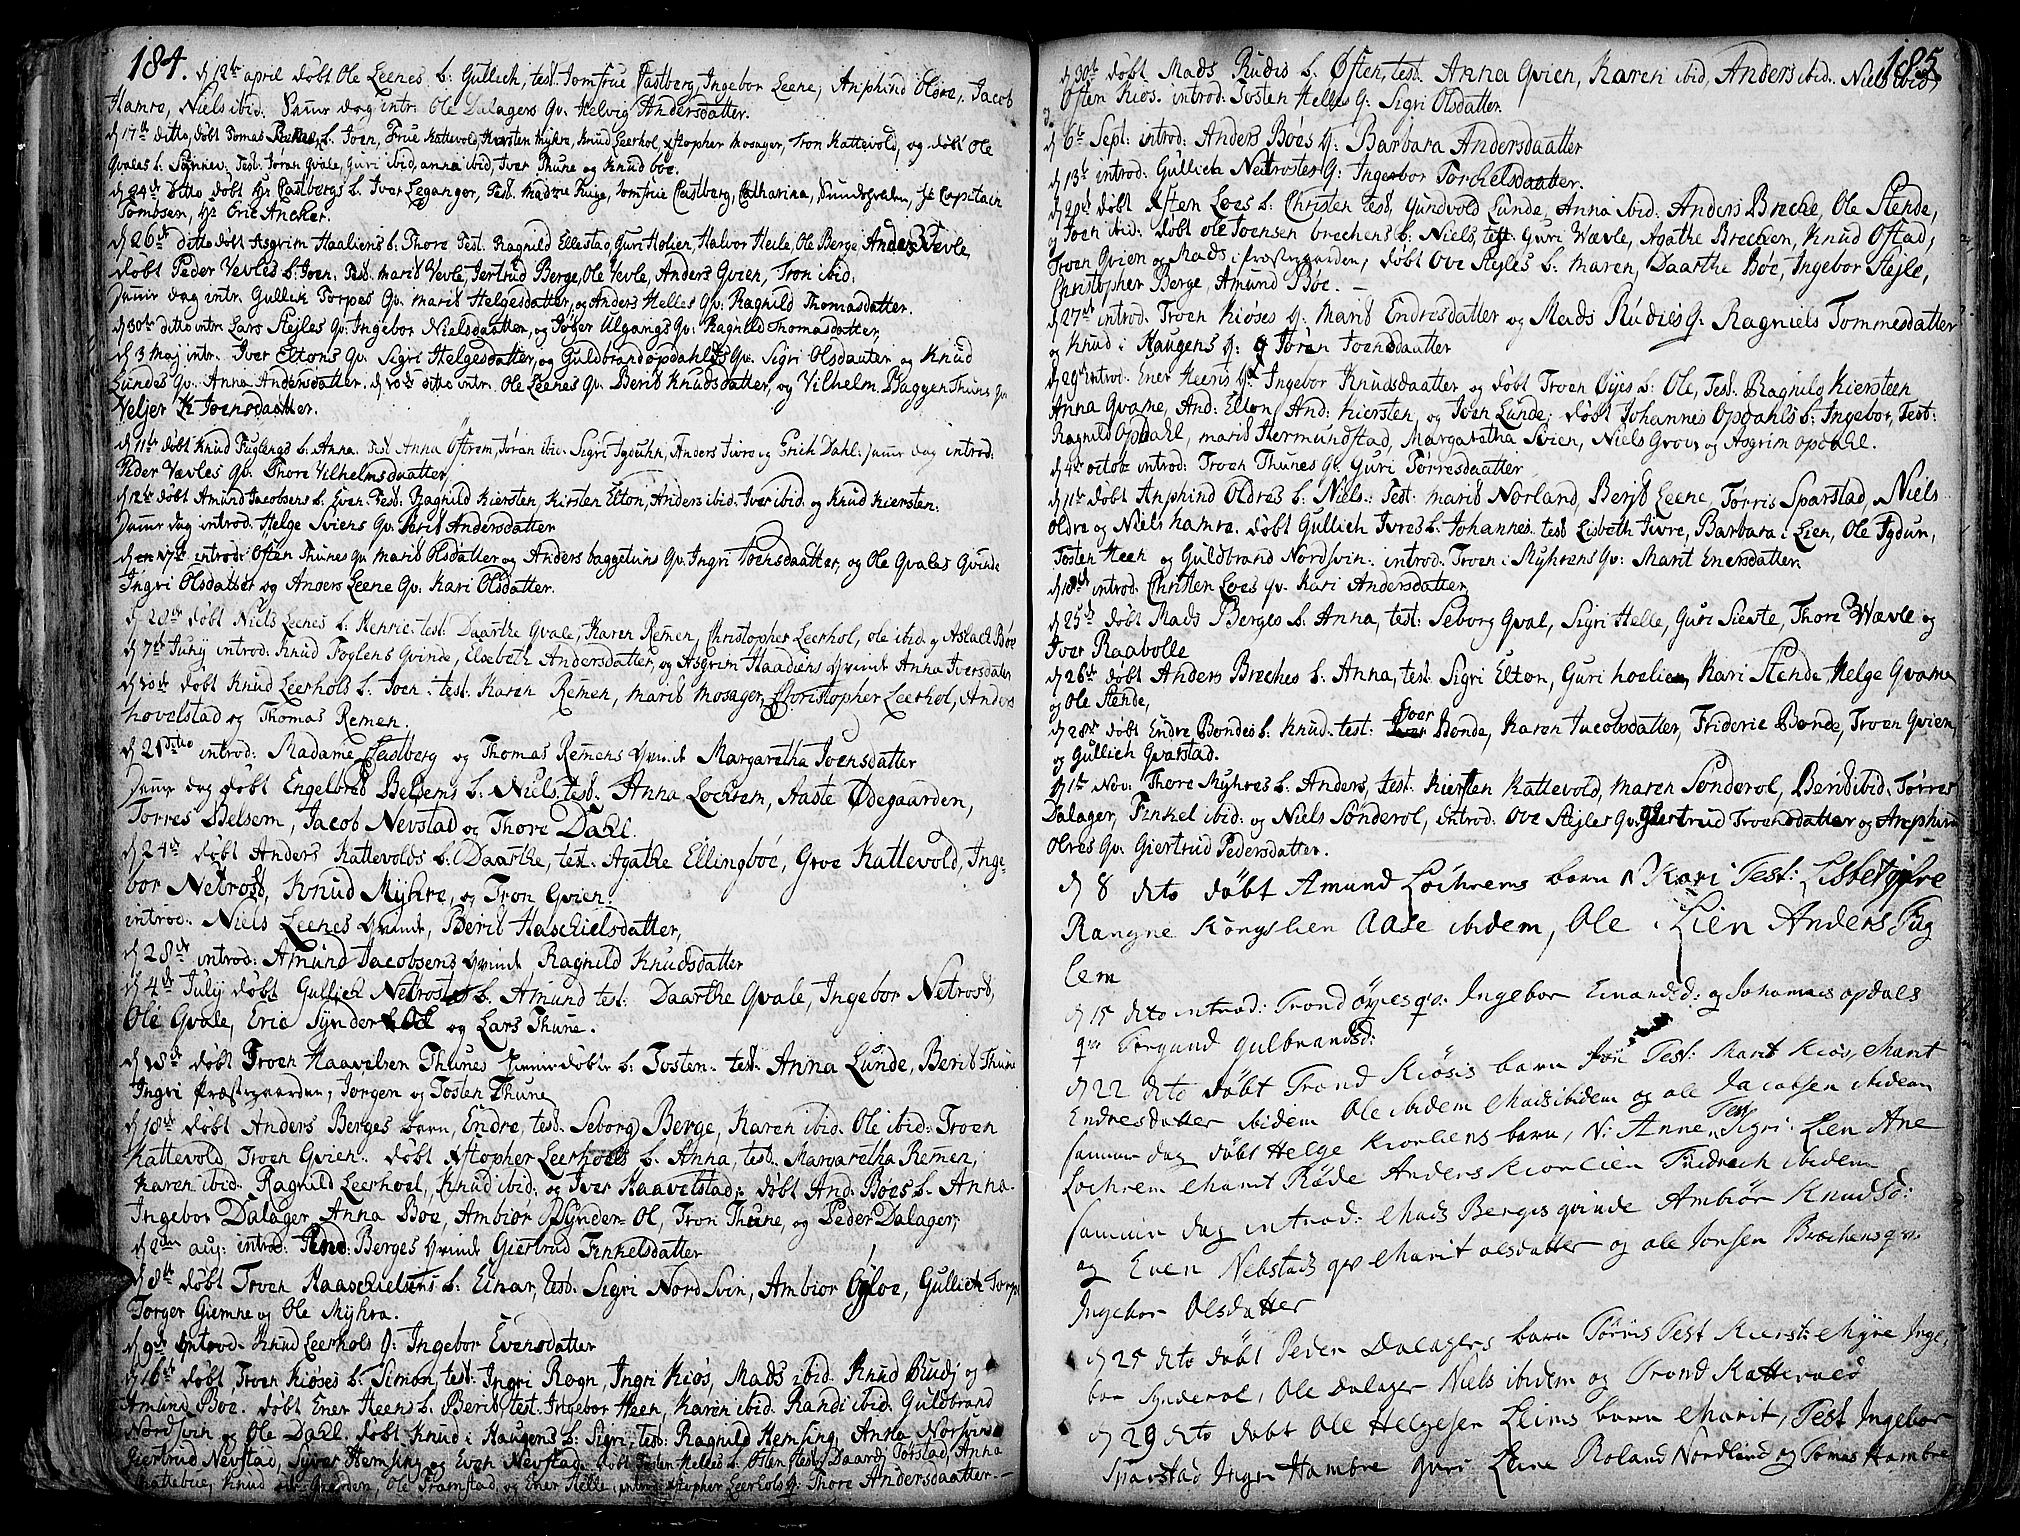 184.
d 12te april døbt Ole Leenes b: Gullich, test. Jomfrue Castberg, Ingebor Leene, Anphind Oldre, Jacob
Hamre, Niels ibid. Samme dag intr: Ole Dalagers Qv: Helvig Andersdatter.
d 17de ditto, døbt Tomas Remens b. Joen, Kattevold, Kiersten Mÿhre, Knud Leerhol, xstopher Mosager, Tron Kattevold, og døbt Ole
Qvales b. Sønnev, Test: Jøran Qvale, Guri ibid, anna ibid, Iver Thune og Knud boe.
d 24de ditto døbt Hr Castbergs b. Iver Leganger, Test. Madme Ruge, Jomfrue Castberg, Catharina, Hr Capitain
Tombsen, Hr Eric Ancher.
d 26de ditto døbt Asgrim Haaliens b: Thore Test. Ragnild Ellestad, Guri Holien, Halvor Heile, Ole Berge, Anders Vevle,
døbt Peder Vevles b: Joen: Test. marit Vevle, Jertrud Berge, Ole Vevle, Anders Qvien, Tron ibid:
Samme dag intr: Gullich Torpes Qv: marit Helgesdatter, og Anders Helles Qv: Ragnild Thomasdatter.
d 30te ditto intr: Lars Slejles Qv: Ingebor Nielsdaatter, og Jøger Ulgangs Qv: Ragnild Thomasdatter,
d 3 Maj intr: Iver Eltons Qv: Sigri Helgesdatter, og Guldbrand opdahls Qv: Sigri Olsdatter og Knud
Lundes Qv: Anna Andersdatter, d 10de ditto intr: Ole Leenes Qv: Berit Knudsdatter, og Vilhelm Baggen Thuns Qv
Veljer K Joensdaatter.
d 11te døbt Knud Fuglengs b. Anna. Test Anna Oftrem, Jøran ibid: Sigri Igduhn, Anders Jvre og Erich Dahl: samme dag introd:
Peder Vævles Qv: Thore Vilhelmsdaatter
d 12te døbt Amund Jacobsens b: Even Test: Ragnild Kiersten, Kirsten Elton, Anders ibid. Iver ibid. og Knud Kiersten:
Samme dag introd: Helge Sviens Qv: Berit Andersdatter
d 17de introd: Osten Thunes Qv: marit Olsdatter og Anders baggetuns Qv: Ingri Joensdaatter, og Ole Qvales Qvinde
Ingri Olsdatter og Anders Leene Qv: Kari Olsdatter.
d 28de døbt Niels Leenes b. Henric. test: Daarthe Qvale, Karen Remen, Christopher Leerhol, ole ibid. og Aslach Bøe
d 7de Juny introd: Knud Foglens Qvinde, Elsebeth Andersdatter, og Asgrim Haaliens Qvinde Anna Iversdater
d 10de døbt Knud Leerhols b: Joen: test: Karen Remen, marit Mosager, Christopher Leerhol, Anders
hovelstad og Thomas Remen.
d 21 ditto introd: Madame Castberg og Thomas Remens Qvinde Margaretha Joensdatter
Samme dag døbt Engelbred Belsems b: Niels, test. Anna Lochrem, Aaste Ødegaarden,
Torres Belsem, Jacob Nevstad og Thore Dahl.
d 24de døbt Anders Kattevolds b: Daarthe, test. Agathe Ellingboe, Groe Kattevold, Inge-
bor Netrost, Knud Mÿhre, og Tron Qvien.
introd: Niels Leenes Qvinde, Berit Haschielsdatter,
d 28de introd: Amund Jacobsens Qvinde Ragnild Knudsdatter
d 4de July døbt Gullich Netrostes b. Amund test: Daarthe Qvale, Ingebor Netrost,
Ole Qvale, Eric Sÿnder og Lars Thune.
d 18de døbt Troen Haavelsen Thunes døbte b: Tosten. test. Anna Lunde, Berit Thune
Ingri Præstegaarden, Jorgen og Tosten Thune
d 18de døbt Anders Berges barn, Endre, test. Seborg Berge, Karen ibid. Ole ibid: Troen
Kattevold Troen Qvien. døbt Xstopher Leerhols b. Anna, test. Margaretha Remen,
Karen ibid. Ragnild Leerhoel, Knud ibid: og Iver Haavelstad; døbt And: Bøes b. Anna.
Ingebor Dalager Anna Boe, Ambior Sÿnder-Ol, Tron Thune, og Peder Dalager,
d 2den aug: introd: And: Berges Qvinde Giertrud Finkelsdatter
d 8de døbt Troen Haaschielsens b: Einar, test. Sigri Nord Svin, Ambior Oÿloe, Gullich Torpe
Torger Giemne og Ole Mÿhra.
d 9de introd: Knud Leerhols Q: Ingebor Evensdatter
d 16de døbt, Troen Kiøses b. Simon, test: Ingri Rogn, Ingri Kiøs, Mads ibid. Knud Rudj og
Amund Boe. døbt Ener Heens b. Berit test: Ingebor Heen, Karen ibid. Randi ibid. Guldbrand
Nordsvin og Ole Dahl. døbt Knud i Haugens b. Sigri, test: Ragnild Hemsing, Anna Norsvin
Giertrud Nevstad, Syver Hemsing og Even Nevstad døbt Tosten Helles b. Osten test: Daardj Torstad, Anna
Kattebue, Knud Gierden, Ole Tramstad, og Ener Helle, introd: xstopher Leerhols Q: Thore Andersdaatter.—
185
d 30te døbt Mads Rudis b. Østen, test. Anna Qvien, Karen ibid, Anders ibid: Niels ibid,
Østen Kiøs. introd: Tosten Helles Q: Sigri Olsdatter.
d 6te Sept: introd: Anders Bøes Q: Barbara Andersdaatter
d 13de introd: Gullich Neitrostes Q: Ingebor Torchelsdaatter.
d 20de døbt Østen Loes b. Christen test, Gundvold Lunde, Anna ibid: Anders Breche, Ole Stende,
og Joen ibid: døbt ole Joensen brechens b: Niels, test: Guri Wævle, Agathe Brechen, Knud Ofstad,
Troen Qvien og Mads i præstegaarden, døbt Ove Slejles b. maren, Daarthe Bøe, Ingebor Slejle,
Christopher Berge, Amund Bøe.—
d 27de introd: Troen Kiøses Q: Marit Endresdatter og Mads Rudies Q: Ragniels Tommesdatter
og Knud i Haugens Q: Jøran Joensdaatter
d 29de introd: Ener Heens Q: Ingebor Knudsdaatter og døbt Troen Øÿes b: Ole, Test: Ragnild Kiersteen
Anna Qvame, And: Elton, And: Kiersten, og Iver Lunde; døbt Johannes Opdahls b: Ingebor, Test:
Ragnild Opdahl, marit Hermundstad, Margaretha Svien, Niels Grov, og Asgrim opdahl.
d 4de octobr introd: Troen Thunes Q: Guri Torresdaatter
d 11te døbt Anphind Oldres b: Niels: Test: marit Norland, Berit Leene, Torris Sparstad, Niels
Oldre og Niels hamre. døbt Gullich Jvres b. Johannes. test Lisbeth Jvre, Barbara i Lien, Ole Igdun,
Tosten Heen og Guldbrand Nordsvin. introd: Troen i Myhrens Qv: Marit Enersdatter.
d 18de introd: Christen Loes qv. Kari Andersdatter
d 25de døbt Mads Berges b. Anna, test: Seborg Qval, Sigri Helle, Guri Sieste, Thore Wævle og
Iver Raabølle
d 26de døbt Anders Breches b. Anna, test: Sigri Elton, Guri hoelien, Kari Stende, Helge Qvame
og Ole Stende,
d 28de døbt Endre Bondes b: Knud. test: Iver Bonde, Karen Jacobsdatter, Friderie Bonde, Troen Qvien,
og Gullich Qvarstad.
d 1te Nov: Thore Myhres b. Anders, test. Kiersten Kattevold, Maren Sønderol, Berit ibid. Tørres
Dalager, Finkel ibid. og Niels Sønderol, introd: Ove Slejles Qv: Giertrud Troensdatter og Anphin
Olres Qv: Giertrud Pedersdatter.
d 8 dto døbt Amund Lochrems barn N Kari Test: Lisbet jvre
Rangne Kongslien Aase ibidem, Ole i Lien Anders Fug
lem
d 15 dto introd: Trond øyes qv: Ingebor Emandsd: og Johannes opdals
qv: Torgund Gulbrandsd:
d 22 dto døbt Trond Kiøsis barn Test: Marit Kiøs, Marit
Endresdatter ibidem Ole ibidem Mads ibidem og ole Jacobsen ibidem
samme dag døbt Helge Kiorliens barn, N: Anne, Test: Sigri Lien Ane
Lochrem Marit Røde Anders Kiorlien Fridrich ibidem
samme dag introd: Mads Berges qvinde Ambiør Knudsd:
og Even Nebstads qv Marit olsdatter og ole Jonsen Brechens qv:
Ingebor Olsdatter
d 25 dto døbt Peder Dalagers barn Torris Test Kierst: Myre Inge,
bor Synderol, Ole dalager Niels ibidem og Trond Kattevold
d 29 dto døbt Ole Helgesen Leims barn Marit, Test Ingebor
Sparstad Inger Hambre guri Leine Roland Nordland og Tomas Hambre